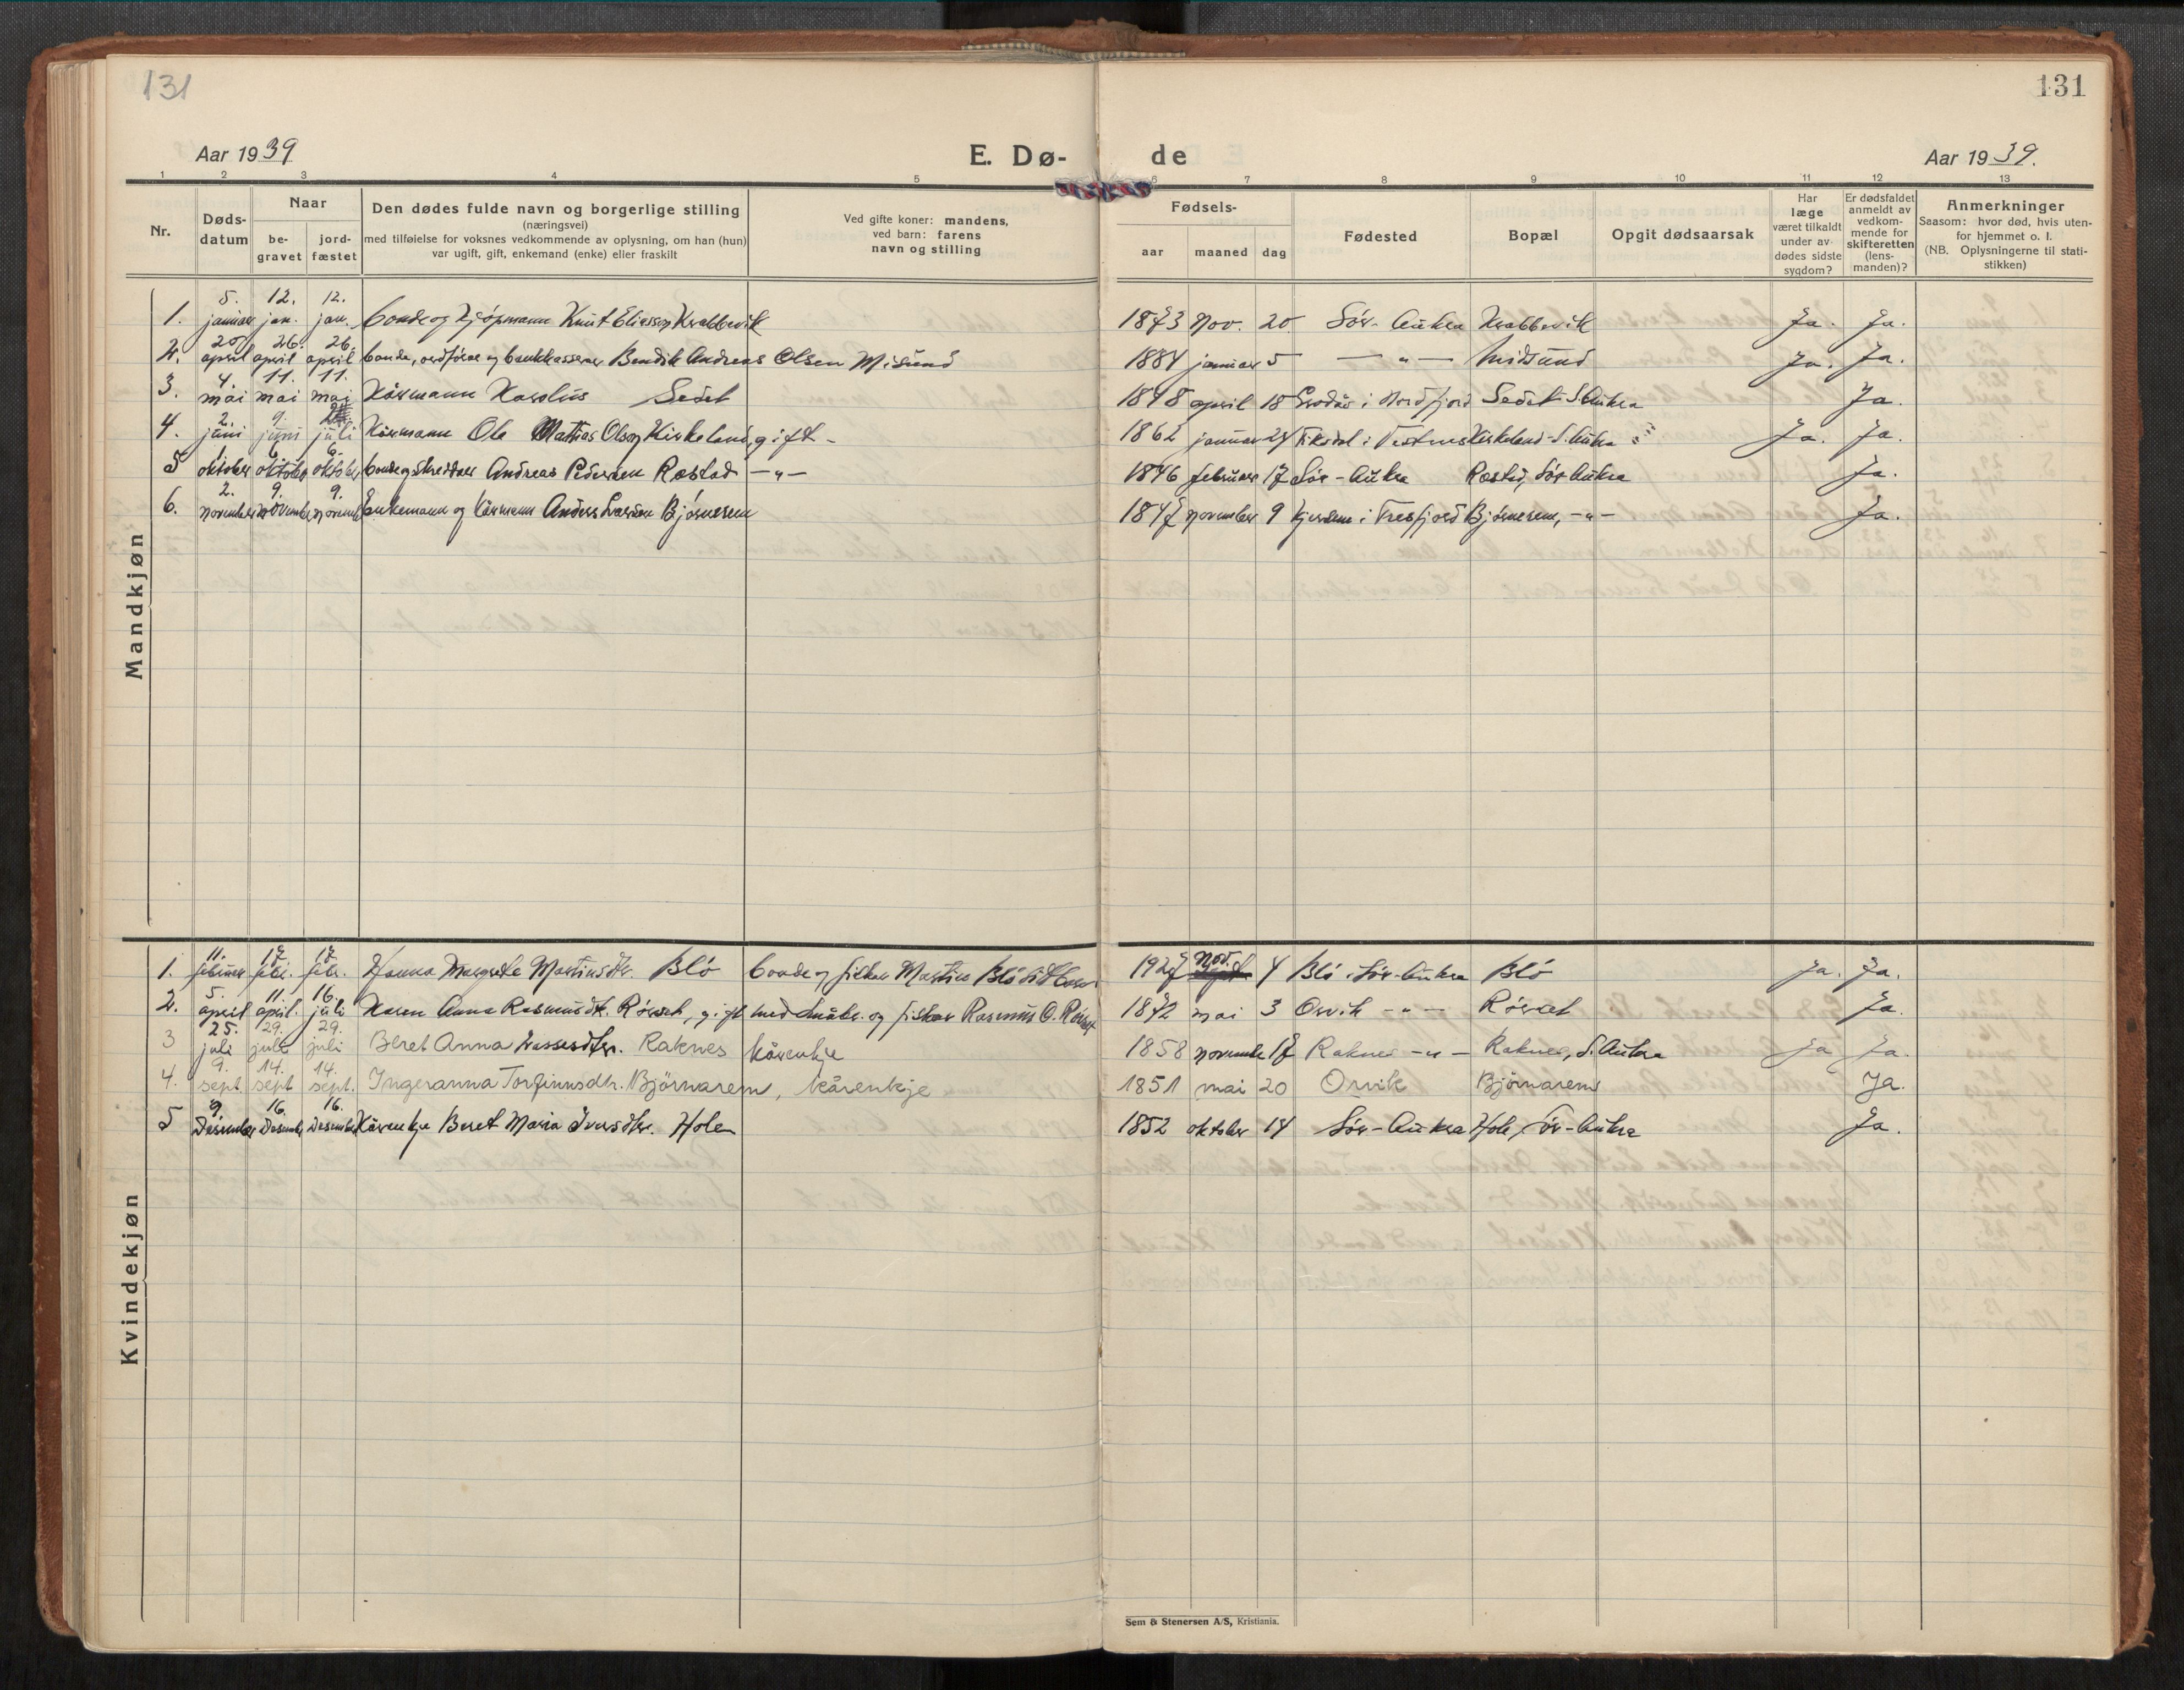 131
131
Aar 1939
E. Dø-
de
Aar 1939.
1 2 3 4 5 6 7 8 9 10 11 12 13
Nr.
Døds-
datum
Naar
be-
gravet
jord-
fæstet
Den dødes fulde navn og borgerlige stilling
(næringsvei)
med tilføielse for voksnes vedkommende av oplysning, om han (hun)
var ugift, gift, enkemand (enke) eller fraskilt
Ved gifte koner: mandens,
ved barn: farens
navn og stilling
Fødsels-
aar
maaned
dag
Fødested
Bopæl
Opgit dødsaarsak
Har
læge
været tilkaldt
under av-
dødes sidste
sygdom?
Er dødsfaldet
anmeldt av
vedkom-
mende for
skifteretten
(lens-
manden)?
Anmerkninger
Saasom: hvor død, hvis uten-
for hjemmet o. l.
(NB. Oplysningerne til stati-
stikken)
Mandkjøn
1. 5. januar 12. jan. 12. jan. bonde og kjøpmann Knut Eliasson Krabbevik 1873 Nov. 20 Sör-Aukra Krabbevik Ja. Ja.
2. 20 april 26. april 26. april bonde, ordförar og bankkasserar Bendik Andreas Olsen Misund 1884 januar 5 — " — Midsund Ja. Ja.
3. 4. mai 11. mai 11. mai Kårmann Karolus Sedet 1848 april 18 i Nordfjord Sedet S. Aukra Ja.
4. 2. juni 9. juni juli Kårmann Ole Mathias Olson Kirkeland, gift - 1862 januar 24 Fiksdal i Vestnes Kirkeland - S. Aukra Ja. Ja.
5 oktober 6. oktober 6. oktober bonde og skreddar Andreas Pedersen Rostad — " — 1846 februar 17 Sör-Aukra Rostad, Sör Aukra Ja.
6. 2. november 9. november 9. november Enkemann og kårmann Anders Larsen Björnerem 1847 november 9 Kjersem i Tresfjord Björnerem, — " — Ja.
Kvindekjøn
1. 11. februar 17 febr. 17 febr. Hanna Margrete Martinsdtr. Blö bonde og fiskar Martin Blö 1927 Nov. 4 Blö i Sör-Aukra Blö Ja. Ja.
2. 5. april 11. april. 16. juli Karen Anna Rasmusdtr. Rörset, gift med småbr. og fiskar Rasmus O. Rörset 1872 mai 3 Orvik — " — Rörset Ja.
3 25. juli 29. juli 29. juli Beret Anna Lassesdtr. Raknes kårenkje 1858 november 17 Raknes — " — Raknes, S. Aukra Ja Ja.
4. 9. sept. 14. sept 14. sept. Ingeranna Torfinnsdtr. Björnarem, kårenkje 1851 mai 20 Orvik Björnarem Ja.
5 9. Desember 16. Desember 16. Desember Kårenkje Beret Maria Iversdtr. Holen 1852 oktober 14 Sör-Aukra Hole, Sör-Aukra Ja.
Sem & Stenersen A/S, Kristiania.